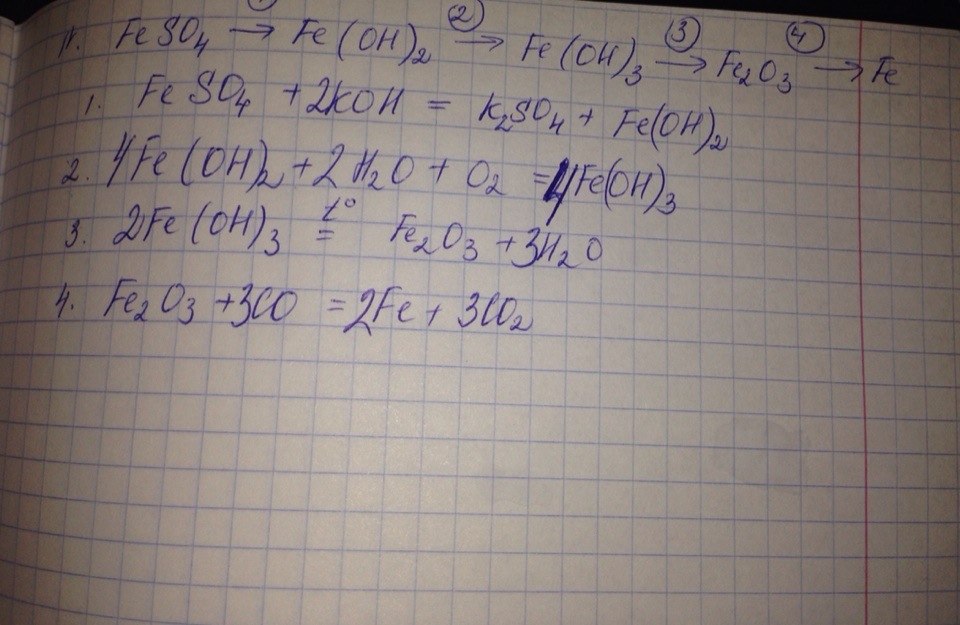 1. FeSO₄ → Fe(OH)₂ ② → Fe(OH)₃ ③ → Fe₂O₃ ④ → Fe
1. FeSO₄ + 2KOH = K₂SO₄ + Fe(OH)₂
2. 4Fe(OH)₂ + 2H₂O + O₂ = 4Fe(OH)₃
3. 2Fe(OH)₃ t° = Fe₂O₃ + 3H₂O
4. Fe₂O₃ + 3CO = 2Fe + 3CO₂